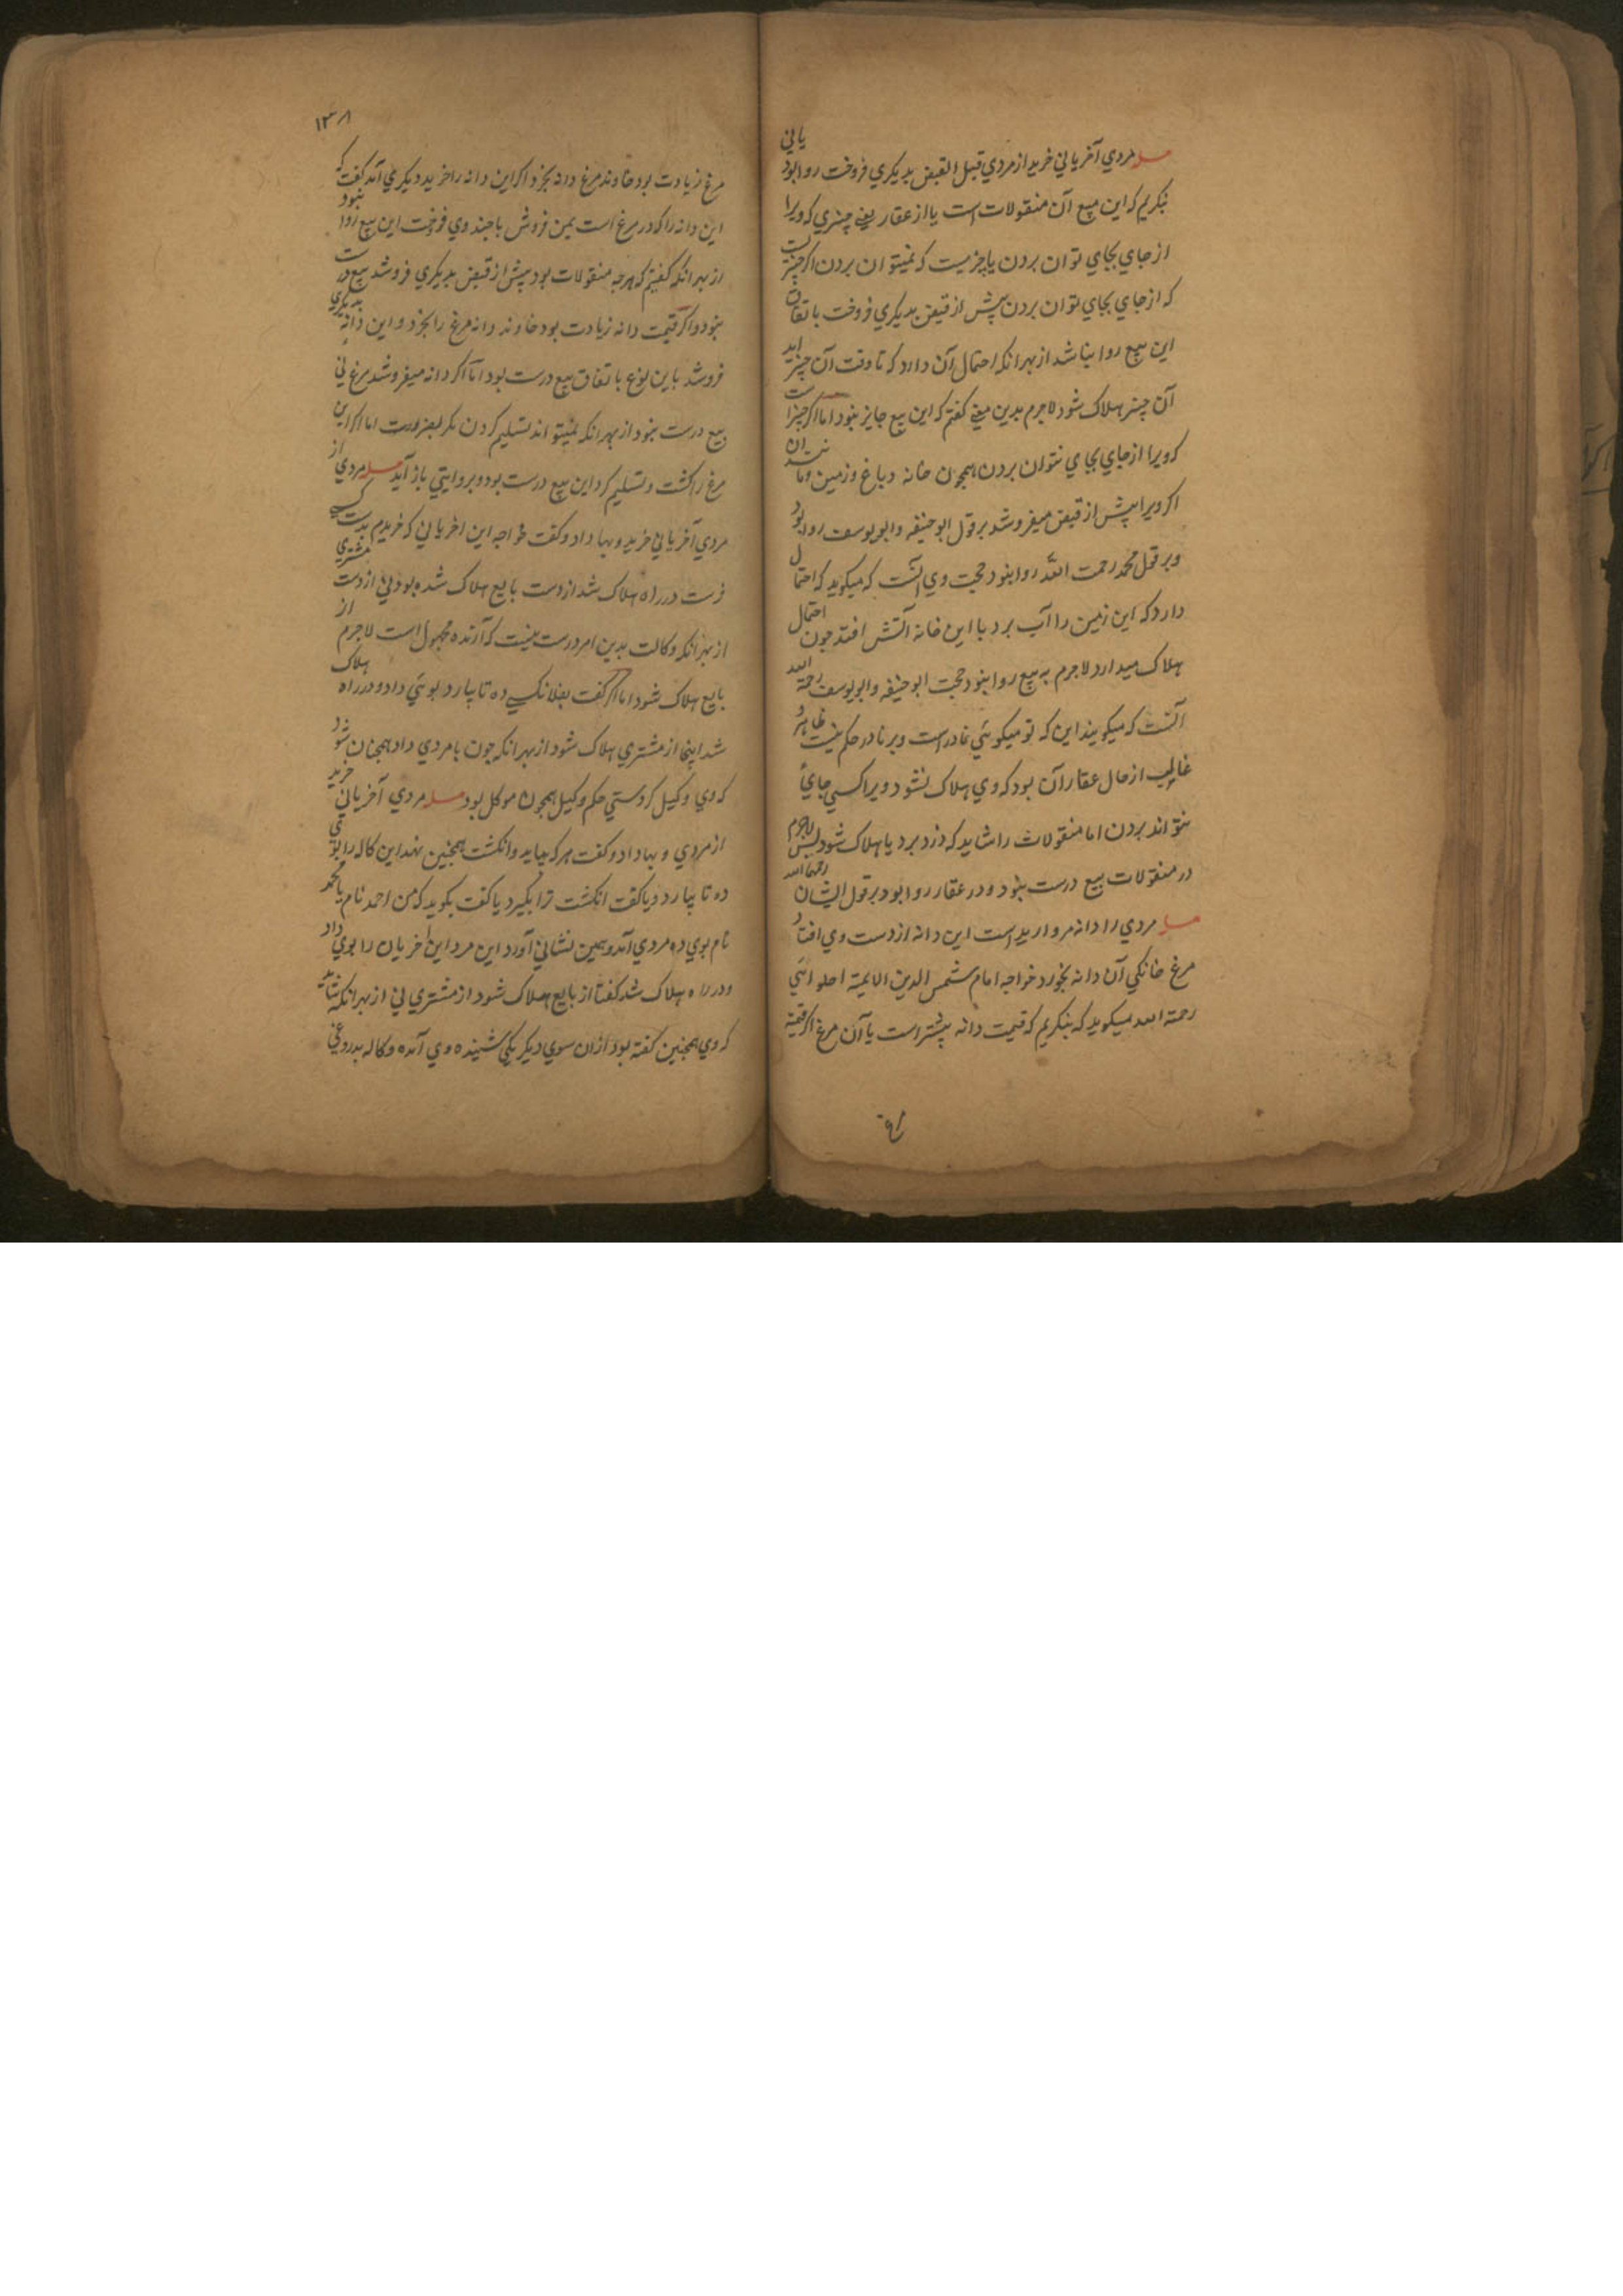 مسله مردي آخرياني خريد از مردي قبل القبض بديكري فروخت روا بود ياني
بنكريم كه اين مبيع آن منقولات است يا از عقار يعني چيزي كه ويرا
از جاي بجاي توان بردن يا چيزيست كه نميتوان بردن اكر چيزيست
كه از جاي بجاي توان بردن پيش از قبض بديكري فروخت باتفاق
اين بيع روا بنا شد از بهر انكه احتمال آن دارد كه تا وقت آن چيز ايد
آن چيز هلاك شود لاجرم بدين معني كفتم كه اين بيع جايز نبود اما اكر چيزيست
كه ويرا از جاي بجاي نتوان بردن همچون خانه و باغ و زمين و مانند ان
اكر ويرا پيش از قبض ميفروشد بر قول ابو حنيفه و ابو يوسف روا بود
و بر قول محمد رحمت الله روا بنود حجت وي آنست كه ميكويد كه احتمال
دارد كه اين زمين را آب برد يا اين خانه آتش افتد چون احتمال
هلاك ميدارد لاجرم به بيع روا بنود حجت ابو حنيفه و ابو يوسف رحمة الله
آنست كه ميكويند اين كه تو ميكوئي نادر است و بر نادر حكم نيست ظاهر و
غالب از حال عقار آن بود كه وي هلاك نشود ويرا كسي جاي
نتواند بردن اما منقولات را شايد كه دزد برد يا هلاك شود پس لاجرم
در منقولات بيع درست بنود و در عقار روا بود بر قول ايشان رحمهما الله
مسله مردي را دانه مرواريد است اين دانه از دست وي افتاد
مرغ خانكي آن دانه بخورد خواجه امام شمس الدين الايمة احلوائي
رحمة الله ميكويد كه بنكريم كه قيمت دانه بيشتر است يا آن مرغ اكر قيمة
١٣٨
مرغ زيادت بود خاوند مرغ دانه بخرد اكر اين دانه را خريد ديكري آمد كفت كه
اين دانه را كه در مرغ است بمن فروش با چند وي فروخت اين بيع روا نبود
از بهر انكه كفتيم كه هرچه منقولات بود پيش از قبض بديكري فروشد بيع درست
بنود و اكر قيمت دانه زيادت بود خاوند دانه مرغ را بخرد و اين دانه بديكري
فروشد باين نوع باتفاق بيع درست بود اما اكر دانه ميفروشد مرغ ني
بيع درست بنود از بهر انكه نميتواند تسليم كردن مكر بضرورت اما اكر اين
مرغ را كشت و تسليم كرد اين بيع درست بود و بروايتي باز آيد مسله مردي از
مردي آخرياني خريد و بها داد و كفت خواجه اين اخرياني كه خريدم بدست كسي
فرست در راه هلاك شد از دست بايع هلاك شده بود ني از دست مشتري
از بهر انكه وكالت بدين امر درست نيست كه آرنده مجهول است لاجرم از
بايع هلاك شود اما اكر كفت بفلانكسي ده تا بيارد بوئي داد و در راه هلاك
شد اينجا از مشتري هلاك شود از بهر انكه چون با مردي داد همچنان شود
كه وي وكيل كردستي حكم وكيل همچون موكل بود مسله مردي آخرياني خريد
از مردي و بها داد و كفت هر كه بيايد و انكشت همچنين نهد اين كاله را بوئي
ده تا بيارد و يا كفت انكشت ترا بكيرد يا كفت بكويد كه من احمد نام يا محمد
نام بوي ده مردي آمد و همين نشاني آورد اين مرد اين اخريان را بوي داد
و در راه هلاك شد كفتا از بايع هلاك شود از مشتري ني از بهر انكه شايد
كه وي همچنين كفته بود از ان سوي ديكر يكي شنيده وي آمده و كاله بدروغي